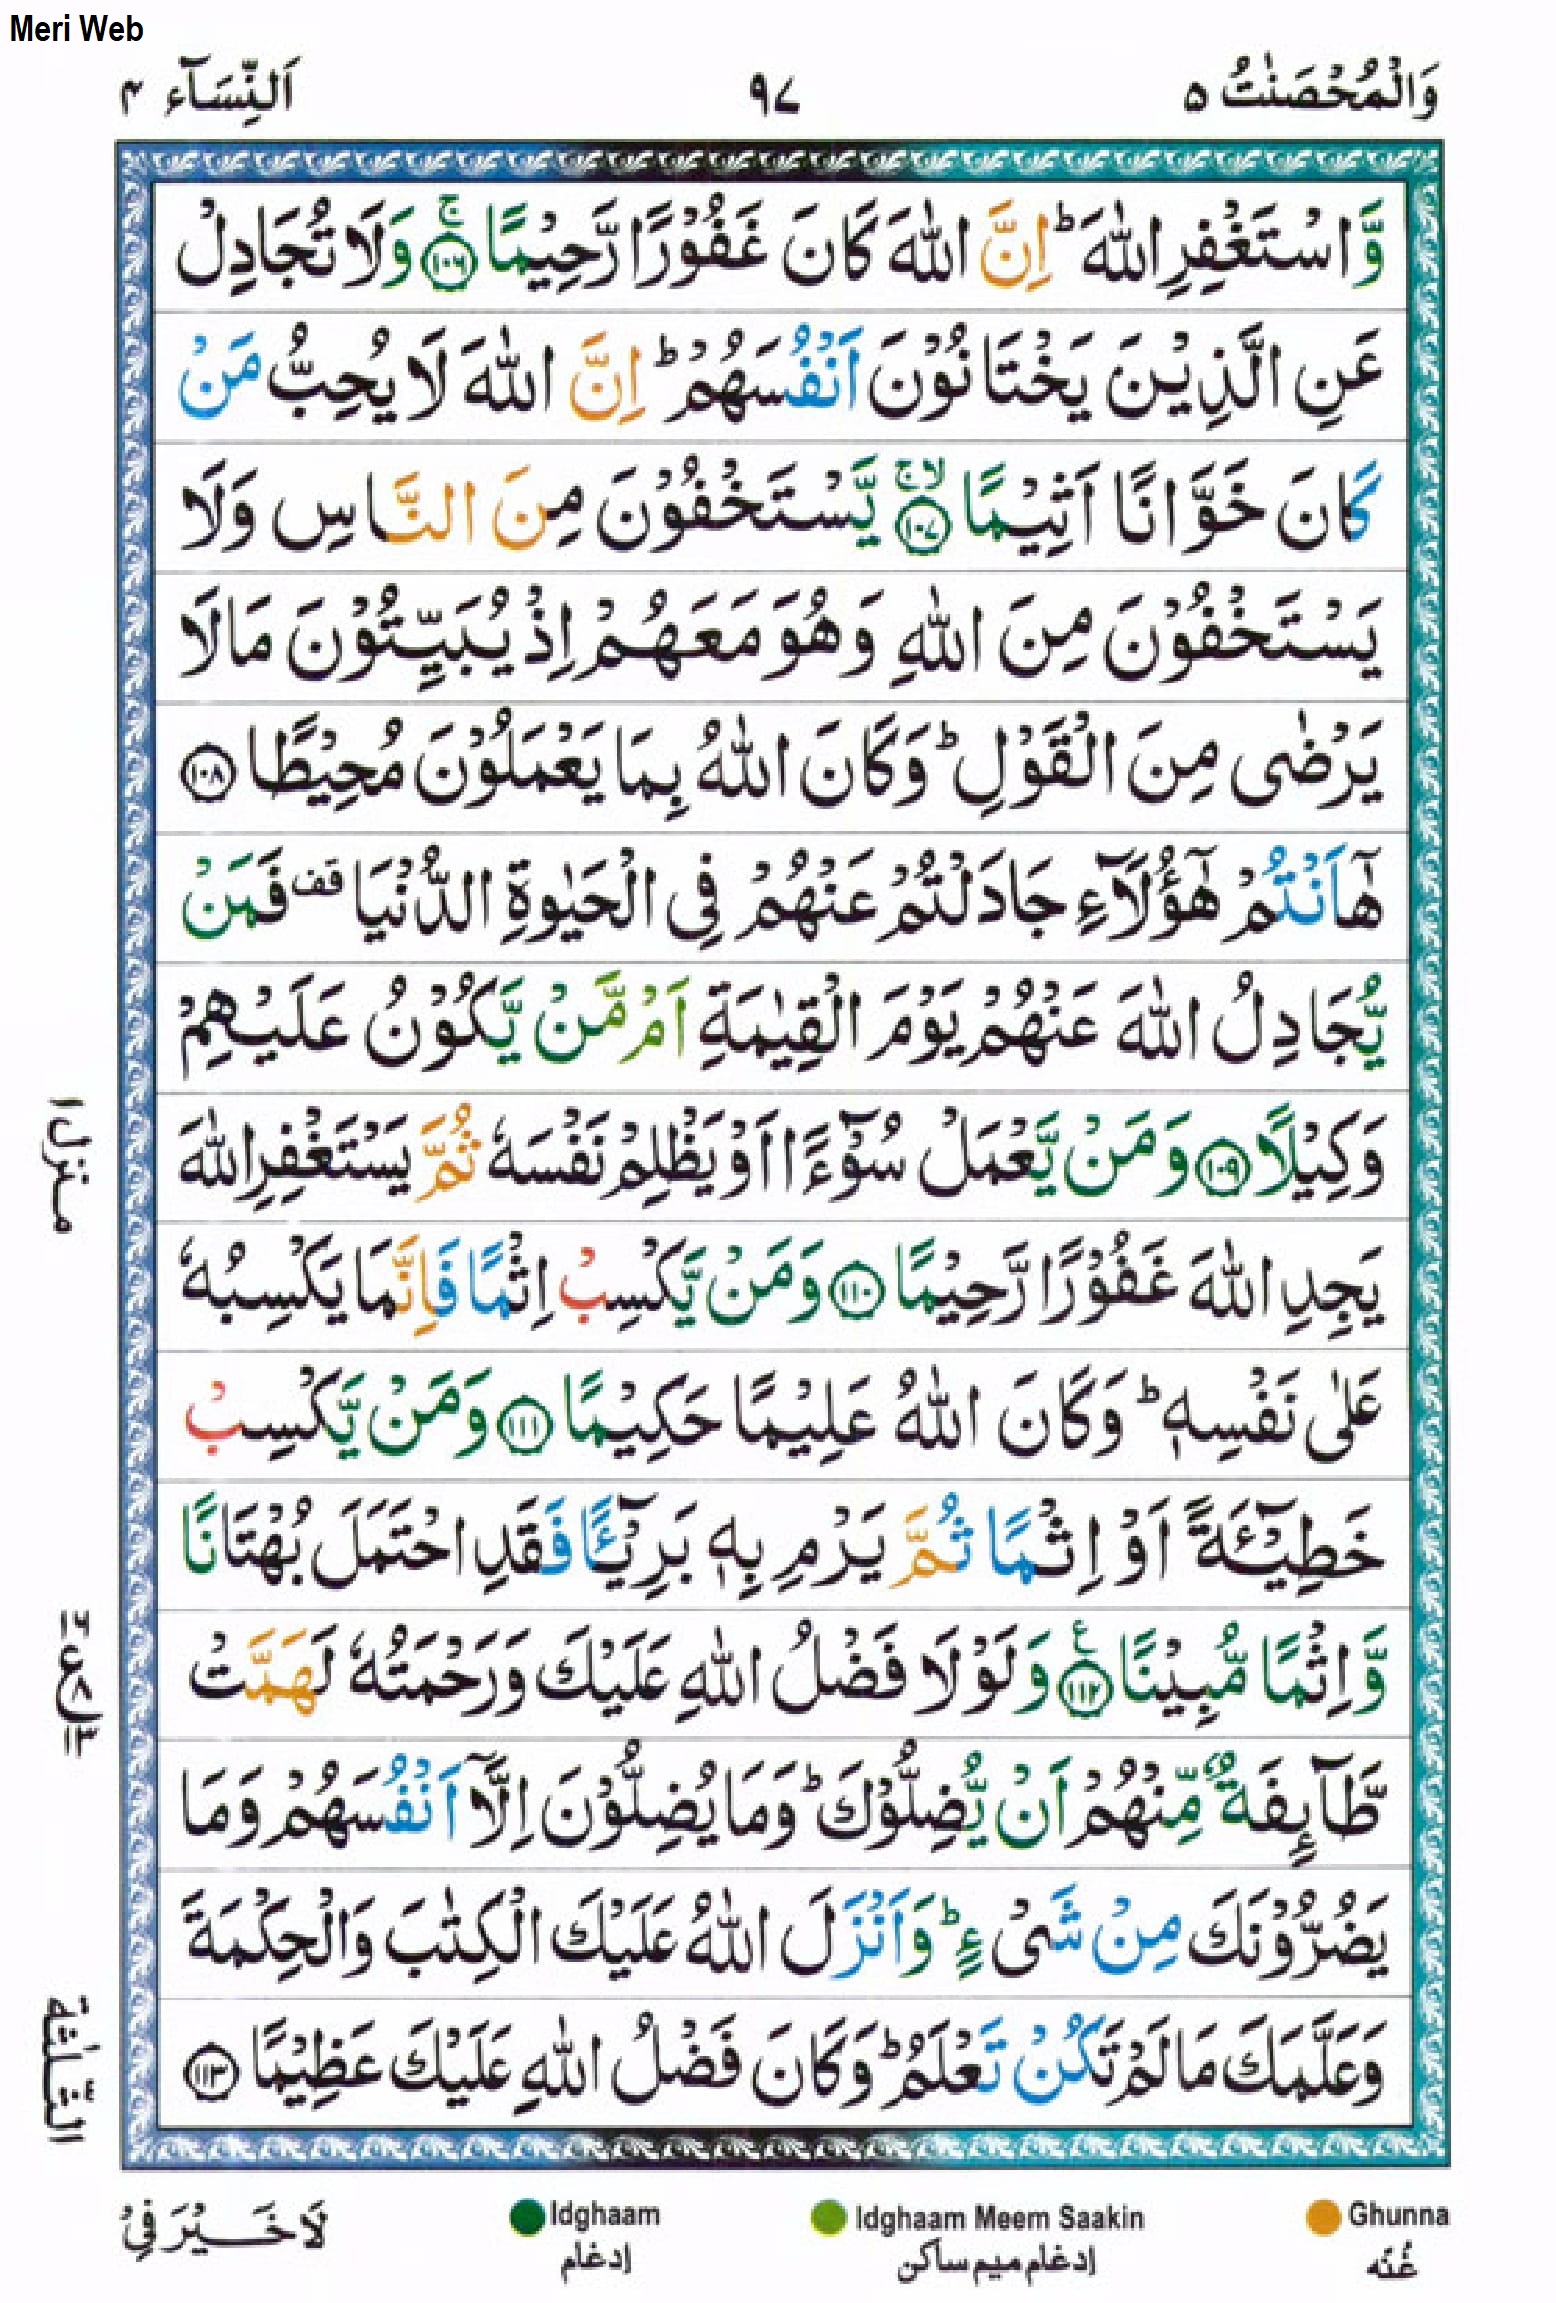 Meri Web
وَالْمُحْصَنٰتُ ۵
۹۷
اَلنِّسَآء ۴
وَّاسْتَغْفِرِ اللّٰهَ ؕ اِنَّ اللّٰهَ كَانَ غَفُوْرًا رَّحِيْمًا ۚ‏﴿۱۰۶﴾ وَلَا تُجَادِلْ
عَنِ الَّذِيْنَ يَخْتَانُوْنَ اَنْفُسَهُمْ ؕ اِنَّ اللّٰهَ لَا يُحِبُّ مَنْ
كَانَ خَوَّانًا اَثِيْمًا ۙۚ‏﴿۱۰۷﴾ يَّسْتَخْفُوْنَ مِنَ النَّاسِ وَلَا
يَسْتَخْفُوْنَ مِنَ اللّٰهِ وَهُوَ مَعَهُمْ اِذْ يُبَيِّتُوْنَ مَا لَا
يَرْضٰى مِنَ الْقَوْلِ ؕ وَكَانَ اللّٰهُ بِمَا يَعْمَلُوْنَ مُحِيْطًا ﴿۱۰۸﴾
هٰۤاَنْتُمْ هٰۤؤُلَآءِ جَادَلْتُمْ عَنْهُمْ فِى الْحَيٰوةِ الدُّنْيَا قف فَمَنْ
يُّجَادِلُ اللّٰهَ عَنْهُمْ يَوْمَ الْقِيٰمَةِ اَمْ مَّنْ يَّكُوْنُ عَلَيْهِمْ
وَكِيْلًا ﴿۱۰۹﴾ وَمَنْ يَّعْمَلْ سُوْٓءًا اَوْ يَظْلِمْ نَفْسَهٗ ثُمَّ يَسْتَغْفِرِ اللّٰهَ
يَجِدِ اللّٰهَ غَفُوْرًا رَّحِيْمًا ﴿۱۱۰﴾ وَمَنْ يَّكْسِبْ اِثْمًا فَاِنَّمَا يَكْسِبُهٗ
عَلٰى نَفْسِهٖ ؕ وَكَانَ اللّٰهُ عَلِيْمًا حَكِيْمًا ﴿۱۱۱﴾ وَمَنْ يَّكْسِبْ
خَطِيْٓــَٔةً اَوْ اِثْمًا ثُمَّ يَرْمِ بِهٖ بَرِيْٓـًٔا فَقَدِ احْتَمَلَ بُهْتَانًا
وَّاِثْمًا مُّبِيْنًا ﴿۱۱۲﴾ ع وَلَوْلَا فَضْلُ اللّٰهِ عَلَيْكَ وَرَحْمَتُهٗ لَهَمَّتْ
طَّآٮِٕفَةٌ مِّنْهُمْ اَنْ يُّضِلُّوْكَ ؕ وَمَا يُضِلُّوْنَ اِلَّاۤ اَنْفُسَهُمْ وَمَا
يَضُرُّوْنَكَ مِنْ شَىْءٍ ؕ وَاَنْزَلَ اللّٰهُ عَلَيْكَ الْكِتٰبَ وَالْحِكْمَةَ
وَعَلَّمَكَ مَا لَمْ تَكُنْ تَعْلَمُ ؕ وَكَانَ فَضْلُ اللّٰهِ عَلَيْكَ عَظِيْمًا ﴿۱۱۳﴾
منزل ۱
الثلٰثة
Ghunna
غُنّه
Idghaam Meem Saakin
إدغام میم ساکن
Idghaam
إدغام
لَا خَيْرَ فِىْ